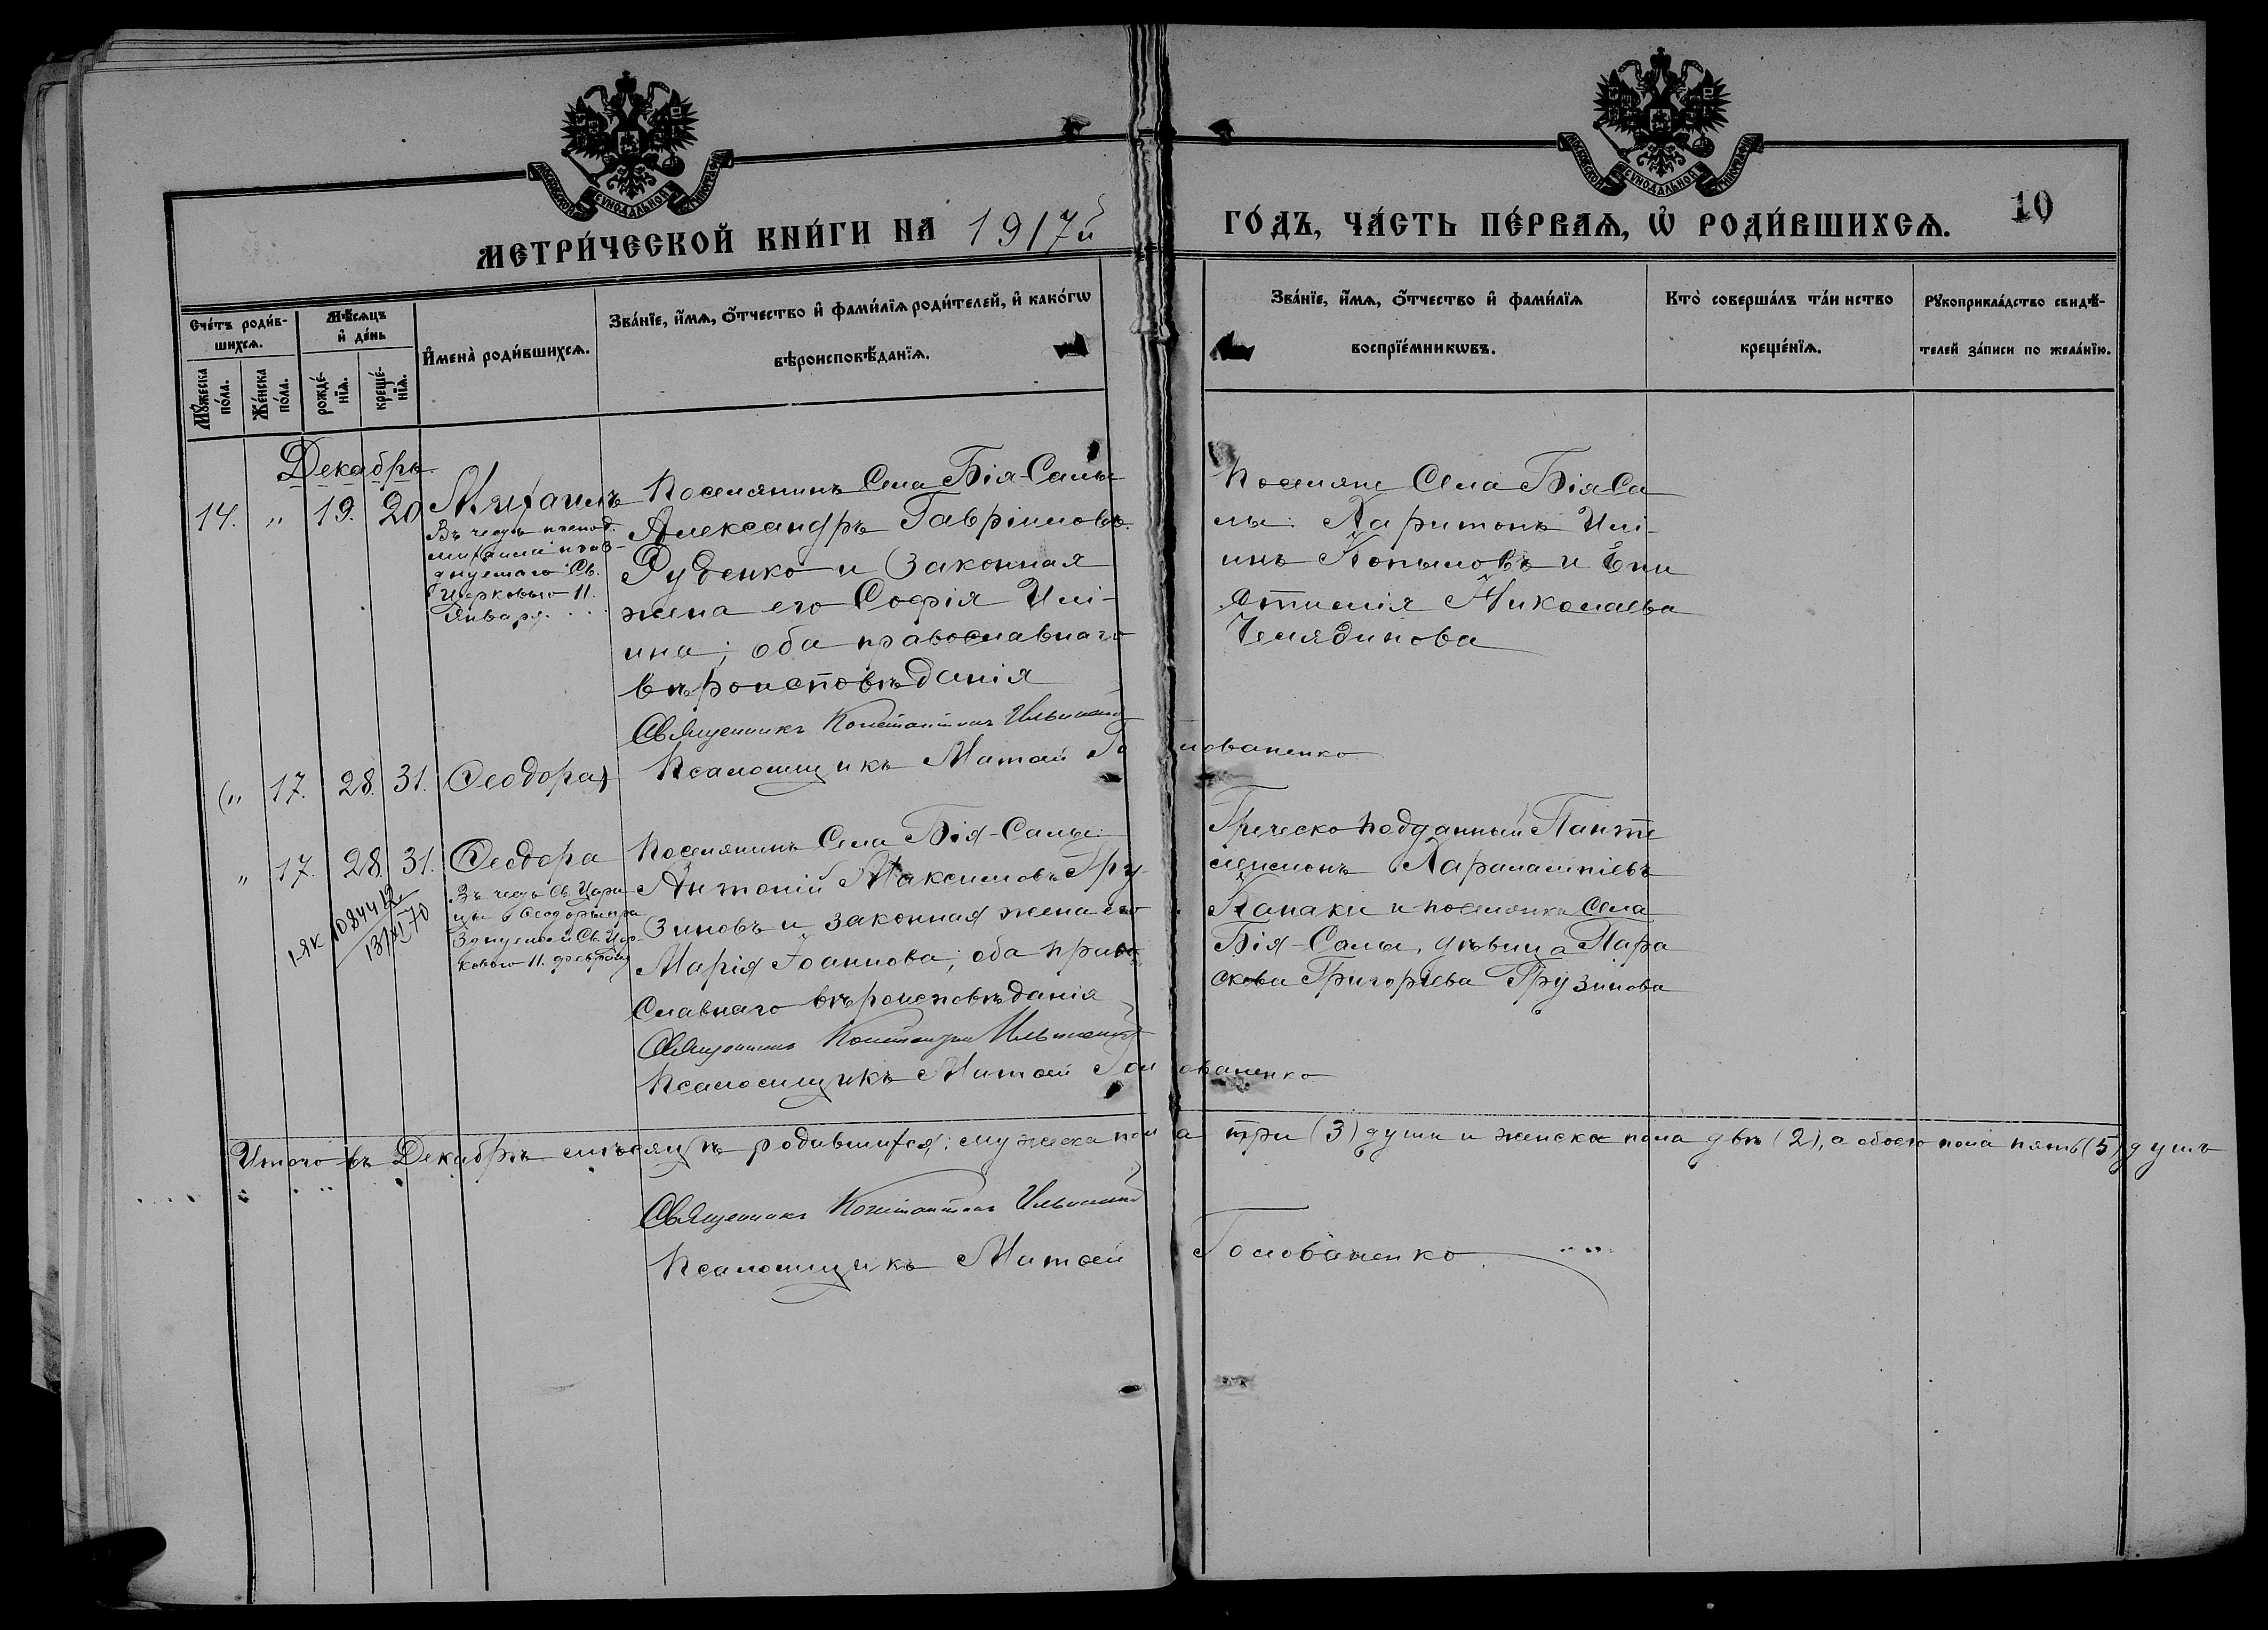 МОСКОВСКОЙ СѴНОДАЛЬНОЙ ТИПОГРАФІИ
МОСКОВСКОЙ СѴНОДАЛЬНОЙ ТИПОГРАФІИ
10
МЕТРИ́ЧЕСКОЙ КНИ́ГИ НА 1917й ГО́ДЪ, ЧА́СТЬ ПЕ́РВАѦ, Ѡ҆ РОДИ́ВШИХСѦ.
Сче́тъ роди́в-
шихсѧ.
Мꙋ́жеска по́ла.
Же́нска по́ла.
Мѣ́сѧцъ
и҆ де́нь
рожде́-
нїѧ.
креще́-
нїѧ.
И҆мена̀ роди́вшихсѧ.
Зва́нїе, и҆́мѧ, ѻ҆́тчество и҆ фами́лїѧ роди́телей, и҆ како́гѡ
вѣроисповѣ́данїѧ.
Зва́нїе, и҆́мѧ, ѻ҆́тчество и҆ фами́лїѧ
воспрїе́мникѡвъ.
Кто̀ соверша́лъ та́инство
креще́нїѧ.
Рꙋкоприкла́дство свидѣ́-
телей за́писи по жела́нїю.
Декабрь
14. " 19. 20 Михаилъ
Въ честь препод.
Михаила празд-
днуемаго Св.
Церковью 11.
Января.
Поселянинъ Села Бія-Салы
Александръ Гавріиловъ
Руденко и законная
жена его Софія Илі-
ина; оба православнаго
вѣроисповѣданія
Поселяне Села Бія-Са
лы: Харитонъ Илі-
инъ Копыловъ и Епи
стимія Николаева
Челядинова
Священникъ Константинъ
Псаломщикъ Матѳей Голованенко
(" 17. 28. 31. Ѳеодора)
" 17. 28. 31. Ѳеодора
Въ честь Св. Цари
цы Ѳеодоры пра
зднуемой Св. Цер-
ковью 11. февраля
1-ЯК 108442
13/VI 70
Поселянинъ Села Бія-Салы:
Антоній Максимовъ Гру
зиновъ и законная жена его
Марія Іоаннова; оба право
славнаго вѣроисповѣданія
Греческо подданный Панте
леимонъ Харалампіевъ
Канаки и поселянка Села
Бія-Салы, дѣвица Пара
скева Григорьева Грузинова
Священникъ Константинъ
Псаломщикъ Матѳей Голованенко
Итого въ Декабрѣ мѣсяцѣ родившихся: мужеска пола три (3) души и женска пола двѣ (2), а обоего пола пять (5) душъ
Священникъ Константинъ
Псаломщикъ Матѳей Голованенко